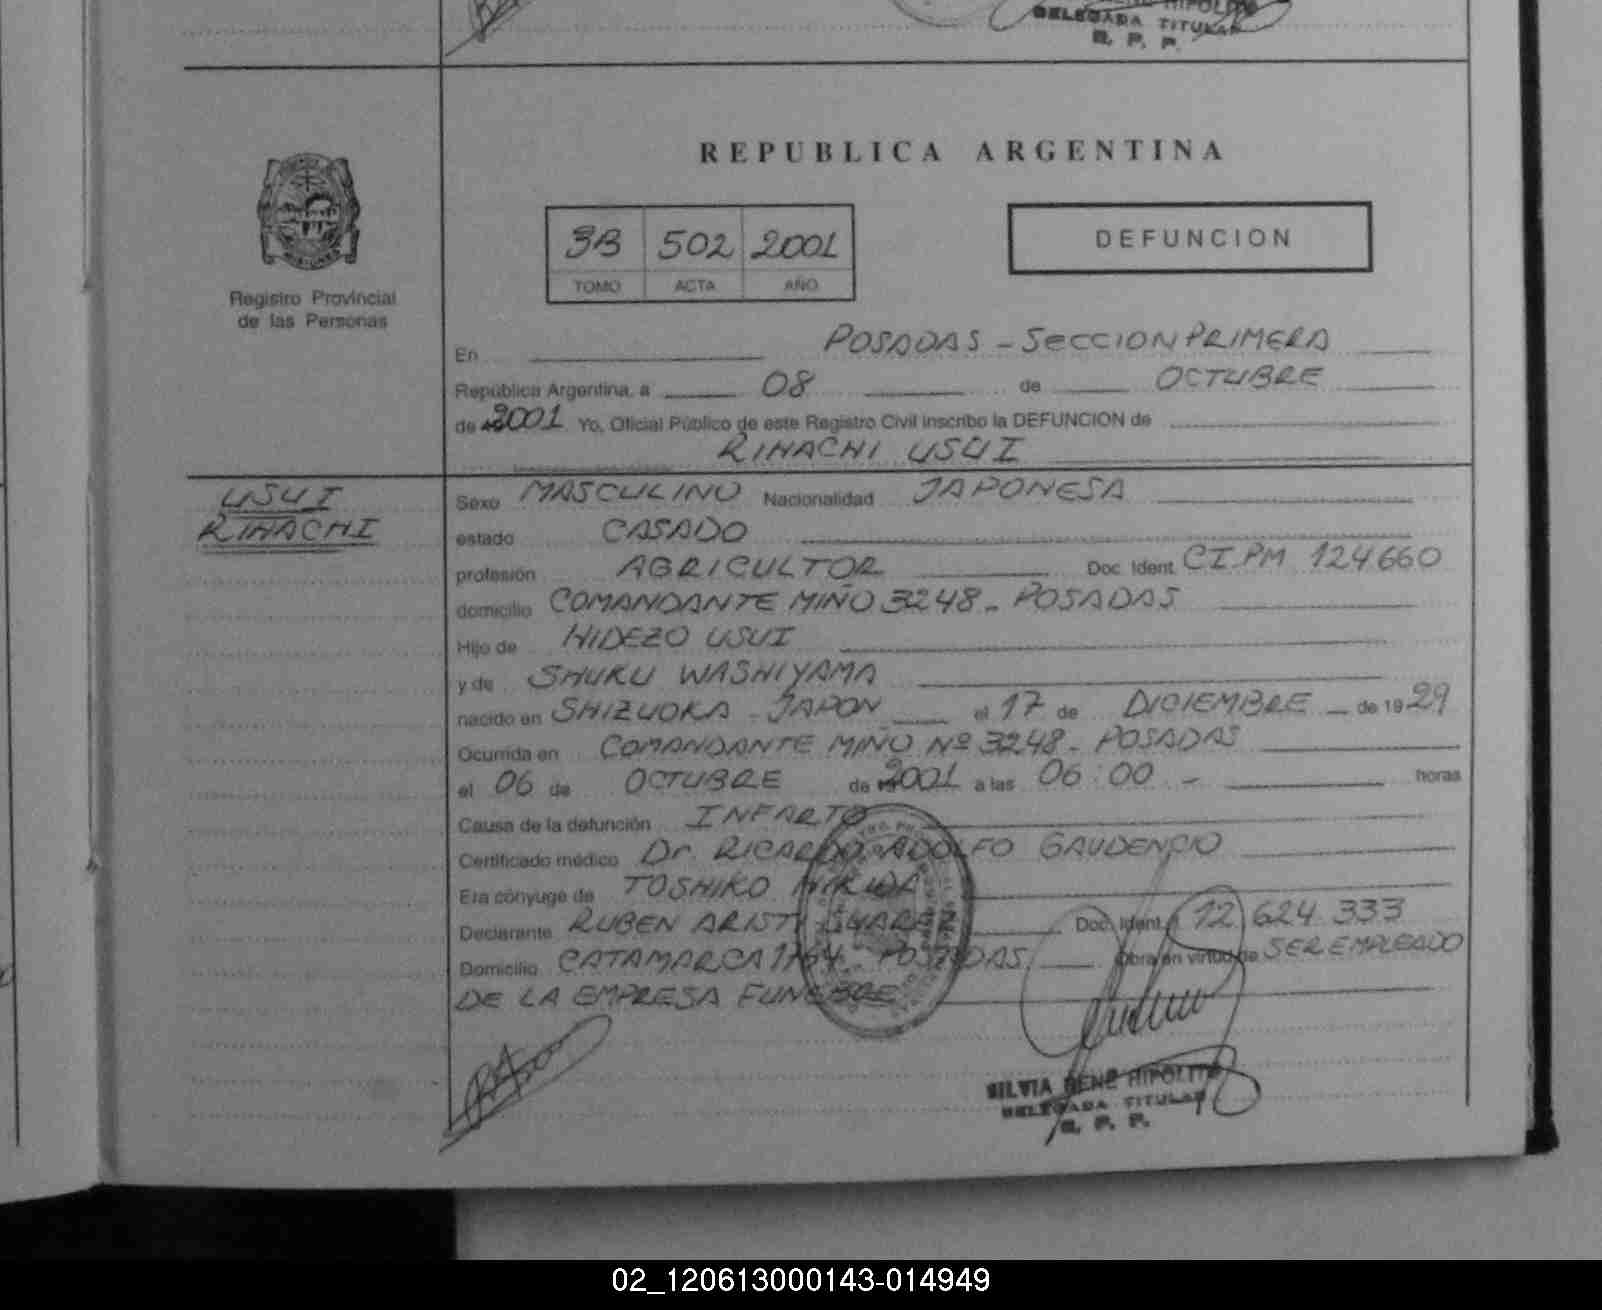 HIPOLITO
DELEGADA TITULAR
R. P. P.
REPUBLICA ARGENTINA
3B 502 2001
TOMO ACTA AÑO
DEFUNCION
MISIONES
Registro Provincial
de las Personas
En POSADAS - SECCION PRIMERA
República Argentina, a 08 de OCTUBRE
de 2001 Yo, Oficial Público de este Registro Civil inscribo la DEFUNCION de
RIHACHI USUI
USUI
RIHACHI
Sexo MASCULINO Nacionalidad JAPONESA
estado CASADO
profesión AGRICULTOR Doc. Ident. CI.PM 124660
domicilio COMANDANTE MIÑO 3248 - POSADAS
Hijo de HIDEZO USUI
y de SHUKU WASHIYAMA
nacido en SHIZUOKA - JAPON el 17 de DICIEMBRE de 1929
Ocurrida en COMANDANTE MIÑO Nº 3248 - POSADAS
el 06 de OCTUBRE de 2001 a las 06:00 - horas
Causa de la defunción INFARTO
Certificado médico Dr. RICARDO ADOLFO GAUDENCIO
Era cónyuge de TOSHIKO
Declarante RUBEN ARISTI SUAREZ Doc. Ident. 12.624.333
Domicilio CATAMARCA 1764 POSADAS Obra en virtud de SER EMPLEADO
DE LA EMPRESA FUNEBRE
SILVIA RENE HIPOLITO
DELEGADA TITULAR
R. P. P.
02_120613000143-014949